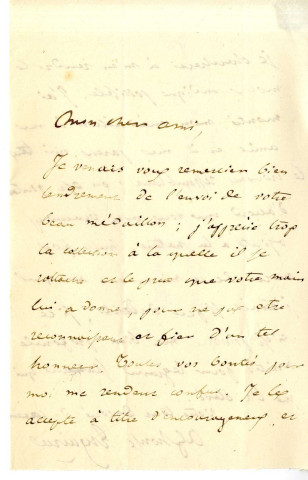 Mon cher ami,
Je venais vous remercier bien
tendrement de l'envoi de votre
beau médaillon ; j'apprécie trop
la collection à laquelle il se
rattache et le prix que votre main
lui a donné, pour ne pas être
reconnaissant et fier d'un tel
honneur. Toutes vos bontés pour
moi me rendent confus. Je les
accepte à titre d'encouragement, et